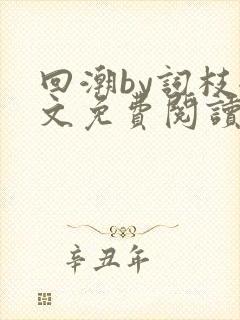 回潮by詞枝
文免費閱讀
辛丑年